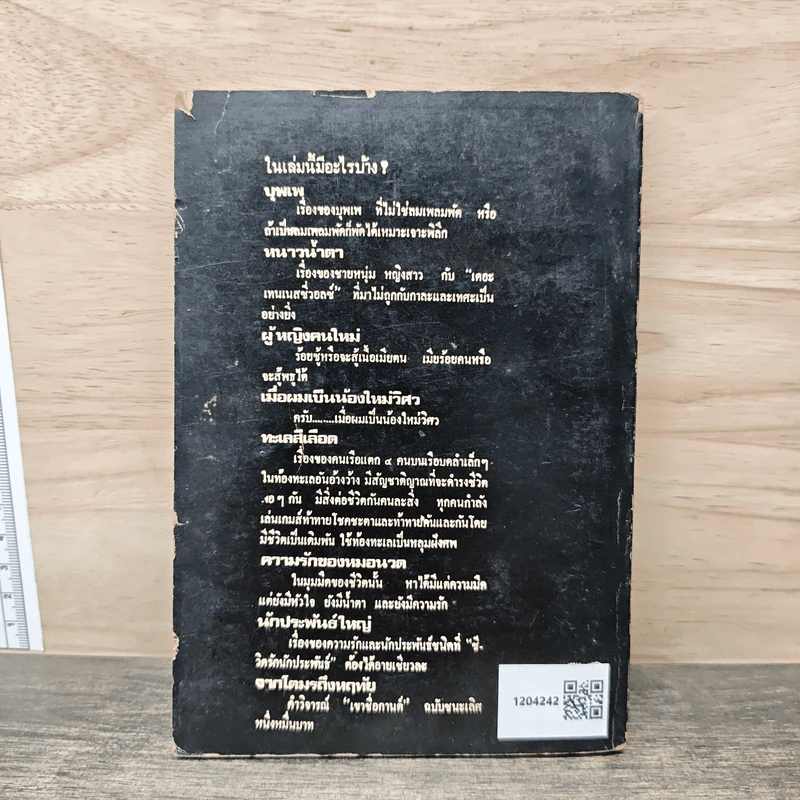 ในเล่มนี้มีอะไรบ้าง ?
บุพเพ
เรื่องของบุพเพ ที่ไม่ใช่ลมเพลมพัด หรือ
ถ้าเป็นลมเพลมพัดก็พัดได้เหมาะเจาะพิลึก
หนาวน้ำตา
เรื่องของชายหนุ่ม หญิงสาว กับ “เดอะ
เทนเนสซี่วอลซ์” ที่มาไม่ถูกกับกาละและเทศะเป็น
อย่างยิ่ง
ผู้หญิงคนใหม่
ร้อยชู้หรือจะสู้เนื้อเมียตน เมียร้อยคนหรือ
จะสู้พธูได้
เมื่อผมเป็นน้องใหม่วิศว
ครับ........เมื่อผมเป็นน้องใหม่วิศว
ทะเลสีเลือด
เรื่องของคนเรือแตก ๔ คนบนเรือบดลำเล็กๆ
ในท้องทะเลอันอ้างว้าง มีสัญชาติญาณที่จะดำรงชีวิต
พอ ๆ กัน มีสิ่งต่อชีวิตกันคนละสิ่ง ทุกคนกำลัง
เล่นเกมส์ท้าทายโชคชะตาและท้าทายกันและกันโดย
มีชีวิตเป็นเดิมพัน ใช้ท้องทะเลเป็นหลุมฝังศพ
ความรักของหมอนวด
ในมุมมืดของชีวิตนั้น หาได้มีแต่ความมืด
แต่ยังมีหัวใจ ยังมีน้ำตา และยังมีความรัก
นักประพันธ์ใหญ่
เรื่องของความรักและนักประพันธ์ชนิดที่ “ชี-
วิตรักนักประพันธ์” ต้องได้อายเชียวละ
จากโตมรถึงหฤทัย
คำวิจารณ์ “เขาชื่อกานต์” ฉบับชนะเลิศ
หนึ่งหมื่นบาท
1204242